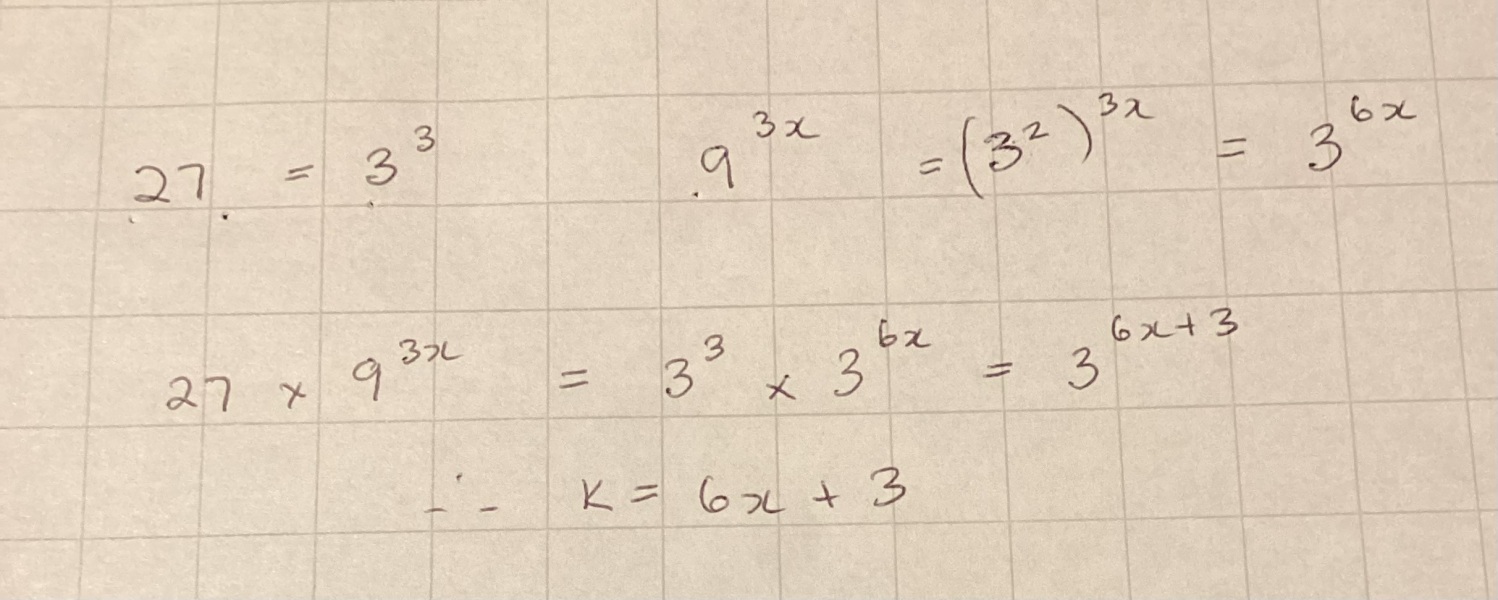 27 = 3³ 9³ˣ = (3²)³ˣ = 3⁶ˣ
27 × 9³ˣ = 3³ × 3⁶ˣ = 3⁶ˣ⁺³
∴ K = 6x + 3